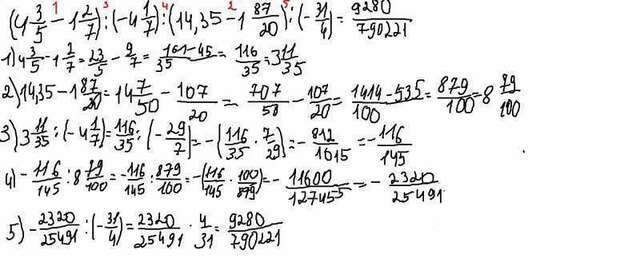 (4 3/5 - 1 2/7) : (-4 1/7) : (14,35 - 1 87/20) : (-31/4) = 9280/790221
1) 4 3/5 - 1 2/7 = 23/5 - 9/7 = 161-45/35 = 116/35 = 3 11/35
2) 14,35 - 1 87/20 = 14 7/50 - 107/20 = 707/50 - 107/20 = 1414-535/100 = 879/100 = 8 79/100
3) 3 11/35 : (-4 1/7) = 116/35 : (-29/7) = -(116/35 · 7/29) = -812/1015 = -116/145
4) -116/145 : 8 79/100 = -116/145 : 879/100 = -(116/145 · 100/879) = -11600/127455 = -2320/25491
5) -2320/25491 : (-31/4) = 2320/25491 · 4/31 = 9280/790221